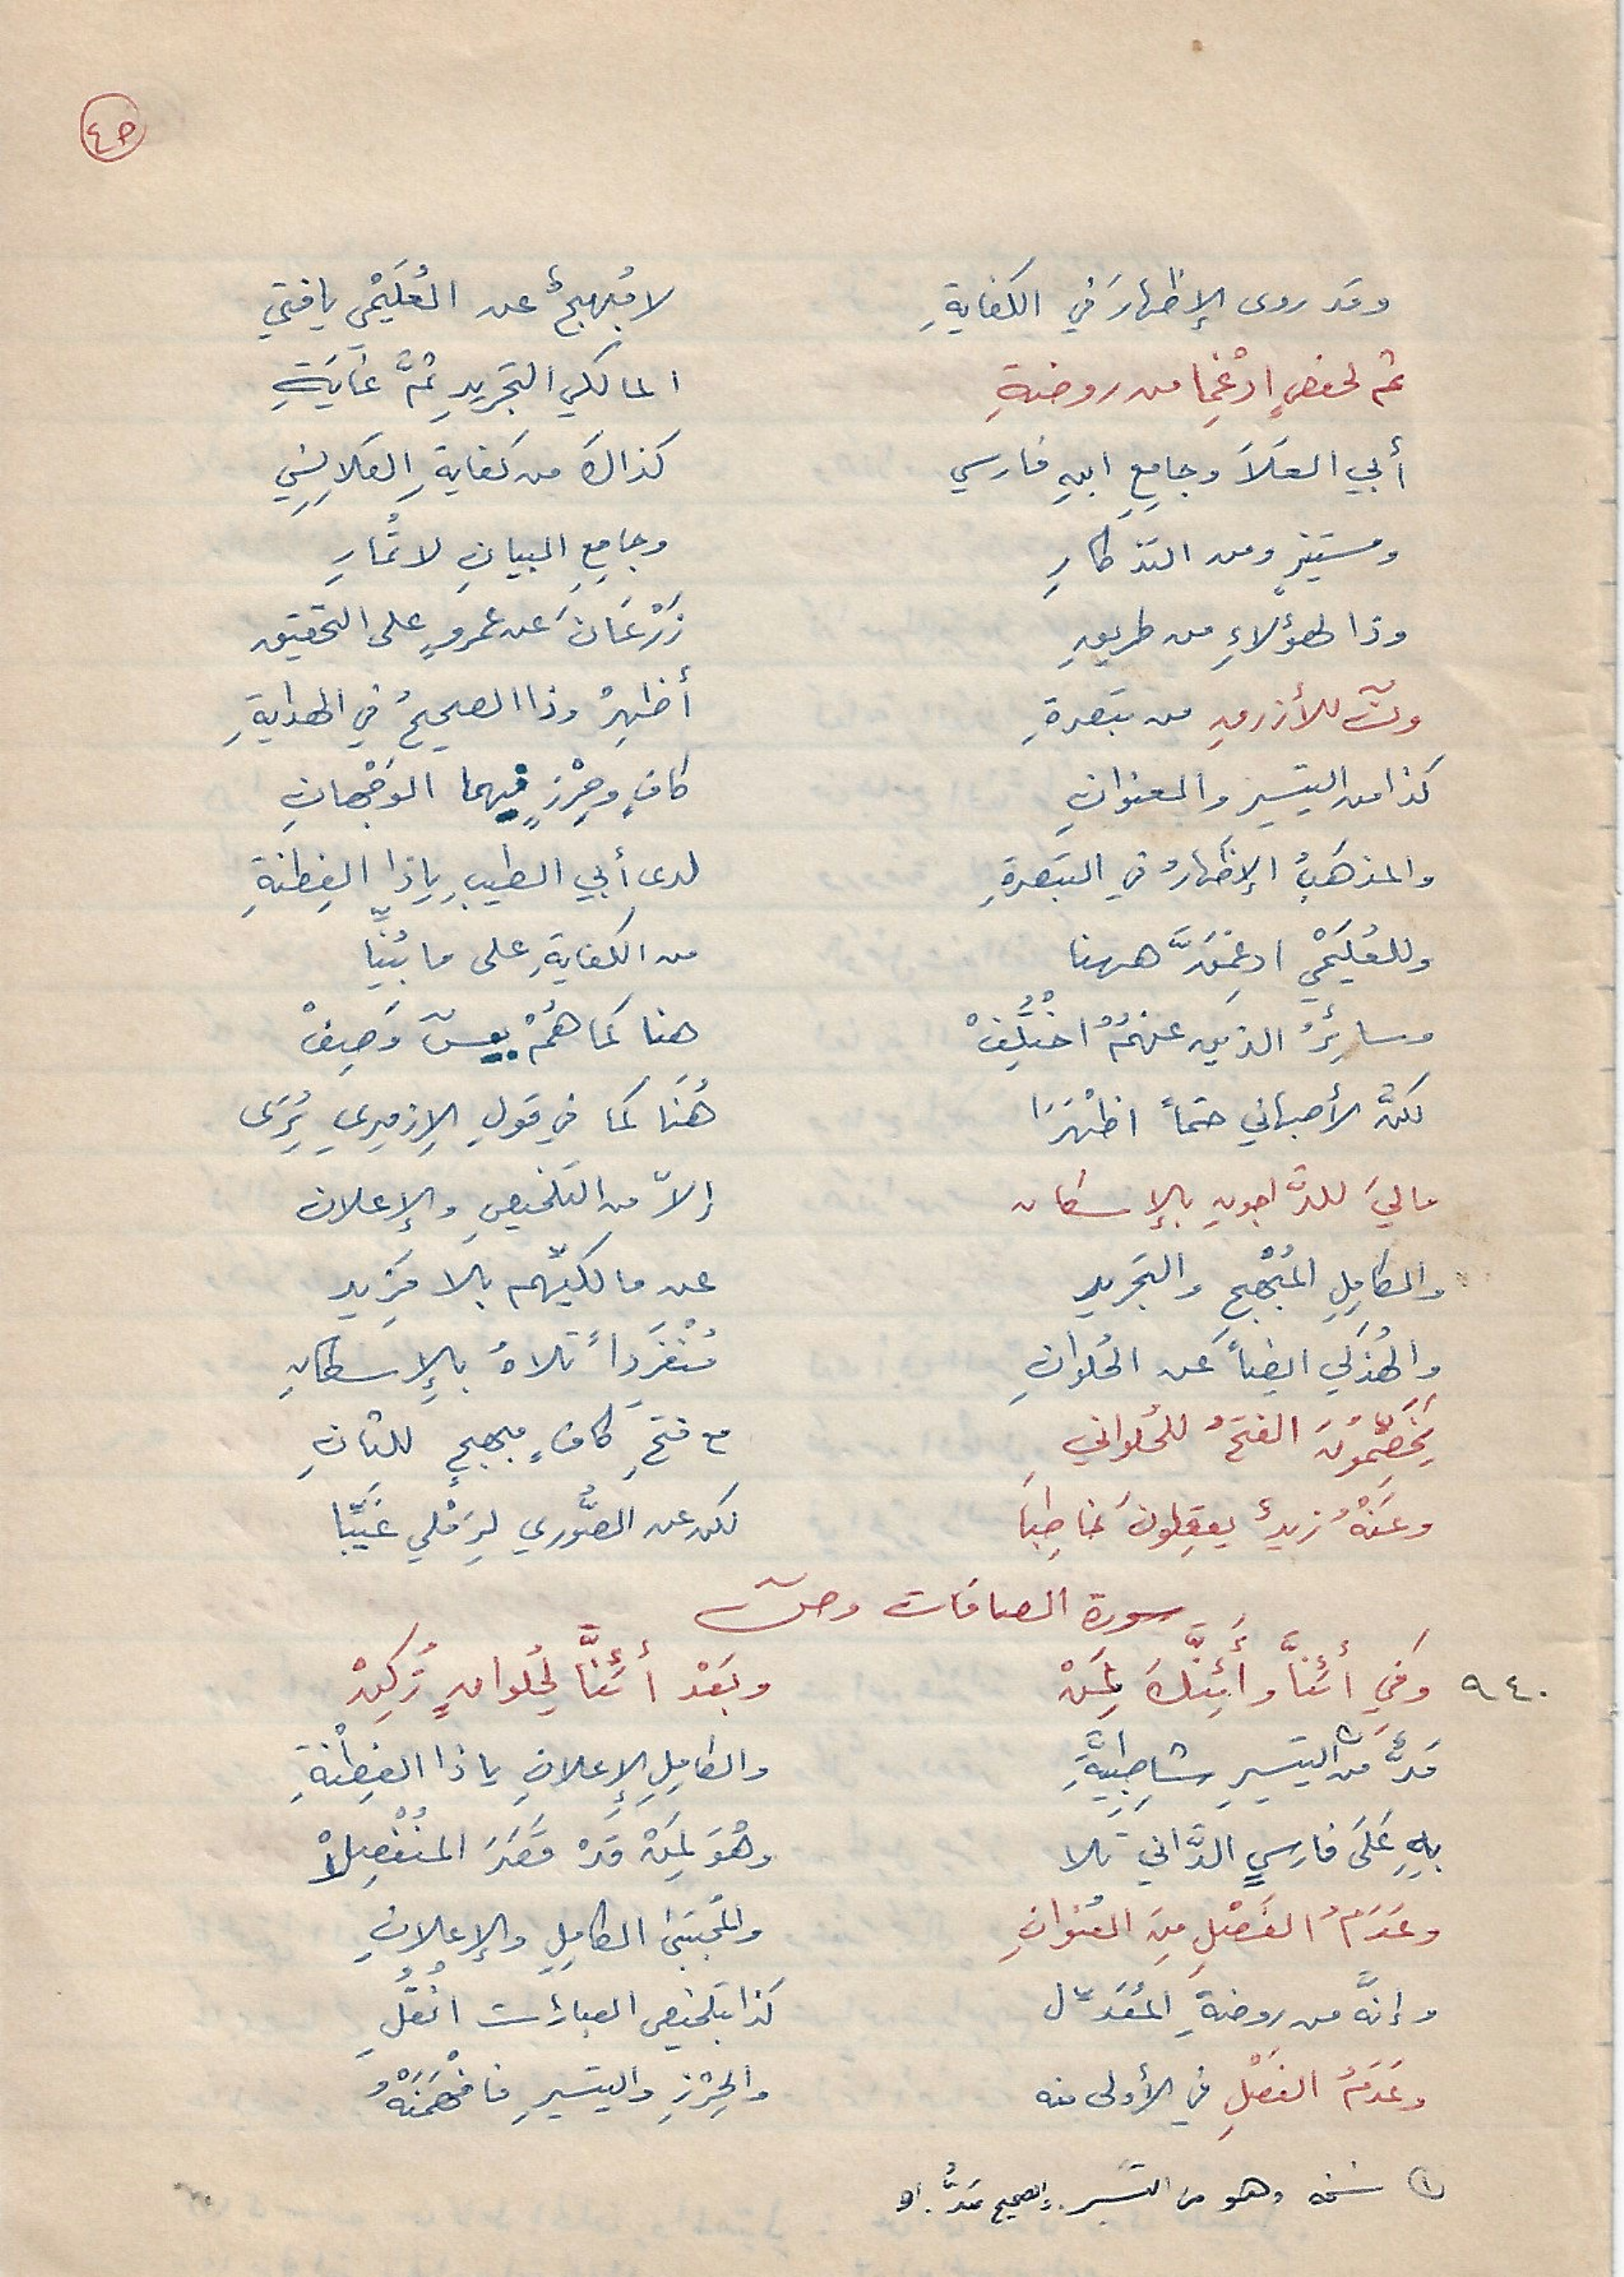 ٤٥
وقد روى الإظهارَ في الكفايةِ لا مُبهجٌ عن العُلَيْمي يا فتي
ثم لحفصٍ ادْغِما من روضةِ المالكي التجريدِ ثمَّ غايَةِ
أبي العَلَا وجامِعِ ابنِ فارسي كذاكَ من كفايةِ القلانِسي
ومستنيرٍ ومن التذكارِ وجامِعِ البيانِ لا تُمارِ
وذا لهؤلاءِ من طريقِ زَرْعَانَ عن عمروٍ على التحقيق
ونٓ للأزرقِ من تبصرةِ أظهِرْ وذا الصحيحُ في الهدايةِ
كذا من التيسير والعنوانِ كافٍ وحِرْزٍ فيهما الوَجْهانِ
والمذهَبُ الإظهارُ في التبصرةِ لدى أبي الطيبِ يا ذا الفِطنةِ
وللعُلَيْمي ادغِمَنَّ ههنا من الكفايةِ على ما بُيِّنا
وسائِرُ الذين عنهمُ اختُلِفْ هنا كما همُمْ بيسٓ وَصِفْ
لكنَّ الأصبهاني حتماً اظْهَرَا هُنَا كما في قولِ الإزميري يُرَى
ماليَ للدَّاجونِ بالإسكان إلاّ من التلخيصِ والإعلان
والكامِلِ المُبْهِجِ والتجريد عن مالكيِّهم بلا مَزيد
والهُذَلي ايضاً عَن الحُلوانِ مُنْفَرِداً تلاهُ بالإسكانِ
يَخَصِّمُونَ الفتحُ للحُلواني مع فتحِ كافٍ مبهجٍ للثانِ
وعَنْهُ زيدٌ يعقِلونَ خاطِبَا لكن عن الصُّوري لِرَمْلي غَيَّبا
سورة الصافات وصٓ
٩٤٠ وَفي أئنَّا وأئِنكَ لِمَنْ وبَعْد أئنَّا لحُلوانٍ زُكِنْ
مَدٌّ من التيسيرِ شاطِبِيَّةِ والكامِلِ الإعلانِ يا ذا الفِطْنةِ
بِهِ عَلَى فارِسٍ الدَّاني تلا وهْوَ لِمَنْ قَدْ قَصَرَ المنْفصِلْا
وعَدَمُ الفَصْلِ مِنَ العُنْوانِ والمُجتَبَى الكامِلِ والإعلانِ
وإنَّه من روضةِ المُعَدَّل كذا بتلخيص العبارات انْقُلِ
وعَدَمُ الفَصْلِ في الأولى منه والحِرْزِ والتيسيرِ فافْهَمَنْهُ
(١) نسخة وهو من التيسير. والصحيح مَدٌّ. اه